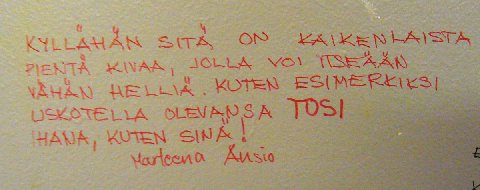 KYLLÄHÄN SITÄ ON KAIKENLAISTA
PIENTÄ KIVAA, JOLLA VOI ITSEÄÄN
VÄHÄN HELLIÄ. KUTEN ESIMERKIKSI
USKOTELLA OLEVANSA TOSI
IHANA, KUTEN SINÄ!
Marleena Ansio